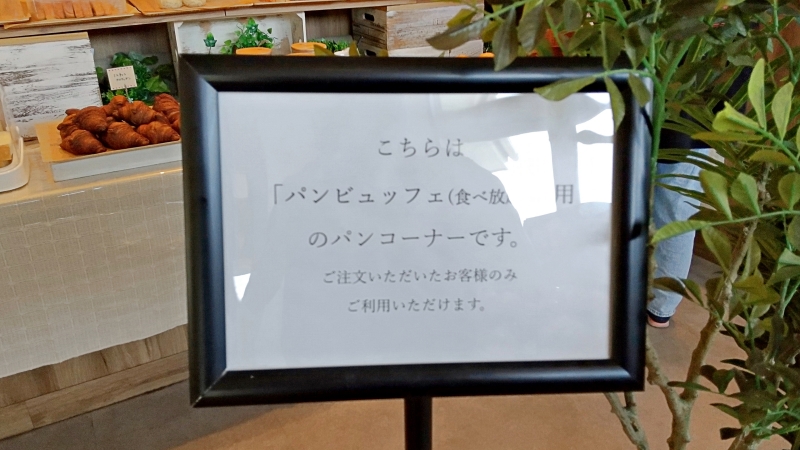 こちらは
「パンビュッフェ(食べ放 用
のパンコーナーです。
ご注文いただいたお客様のみ
ご利用いただけます。